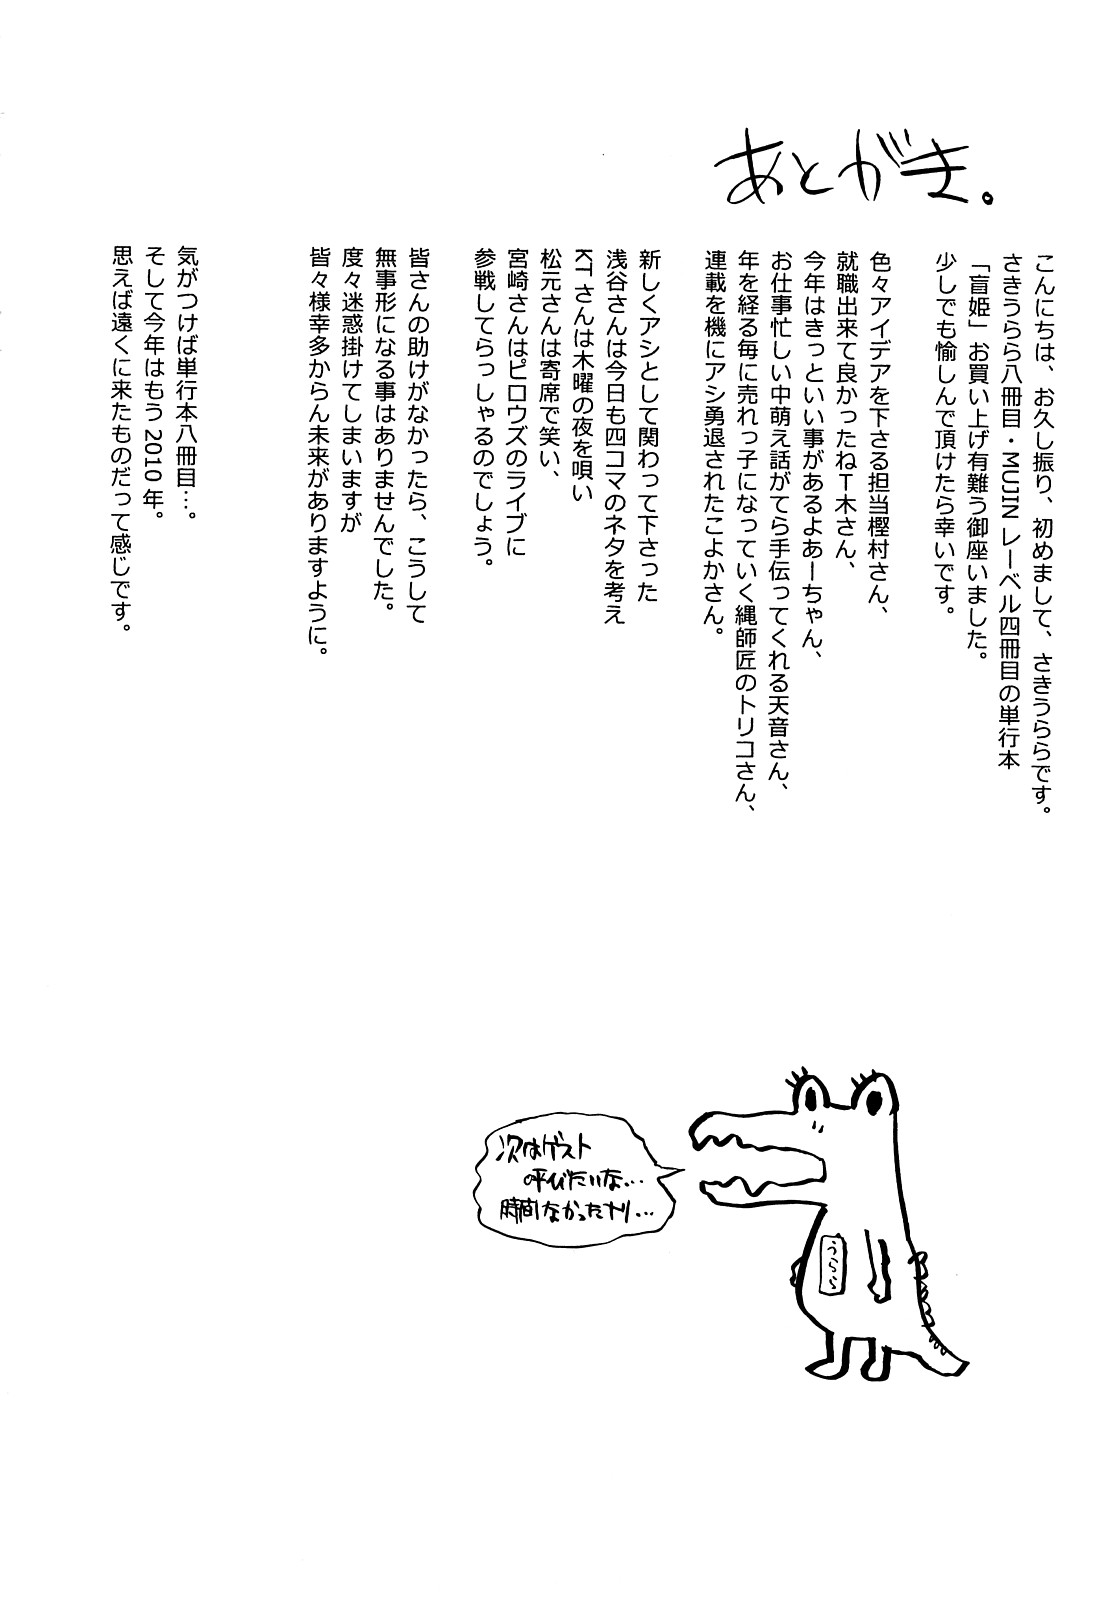 あとがき。
こんにちは、お久し振り、初めまして、さきうららです。
さきうらら八冊目・MUJINレーベル四冊目の単行本
「盲姫」お買い上げ有難う御座いました。
少しでも愉しんで頂けたら幸いです。
色々アイデアを下さる担当樫村さん、
就職出来て良かったねT木さん、
今年はきっといい事があるよあーちゃん、
お仕事忙しい中萌え話がてら手伝ってくれる天音さん、
年を経る毎に売れっ子になっていく縄師匠のトリコさん、
連載を機にアシ勇退されたこよかさん。
新しくアシとして関わって下さった
浅谷さんは今日も四コマのネタを考え
KTさんは木曜の夜を唄い
松元さんは寄席で笑い、
宮崎さんはピロウズのライブに
参戦してらっしゃるのでしょう。
皆さんの助けがなかったら、こうして
無事形になる事はありませんでした。
度々迷惑掛けてしまいますが
皆々様幸多からん未来がありますように。
気がつけば単行本八冊目…。
そして今年はもう2010年。
思えば遠くに来たものだって感じです。
次はゲスト
呼びたいな…
時間なかったナリ…
うらら